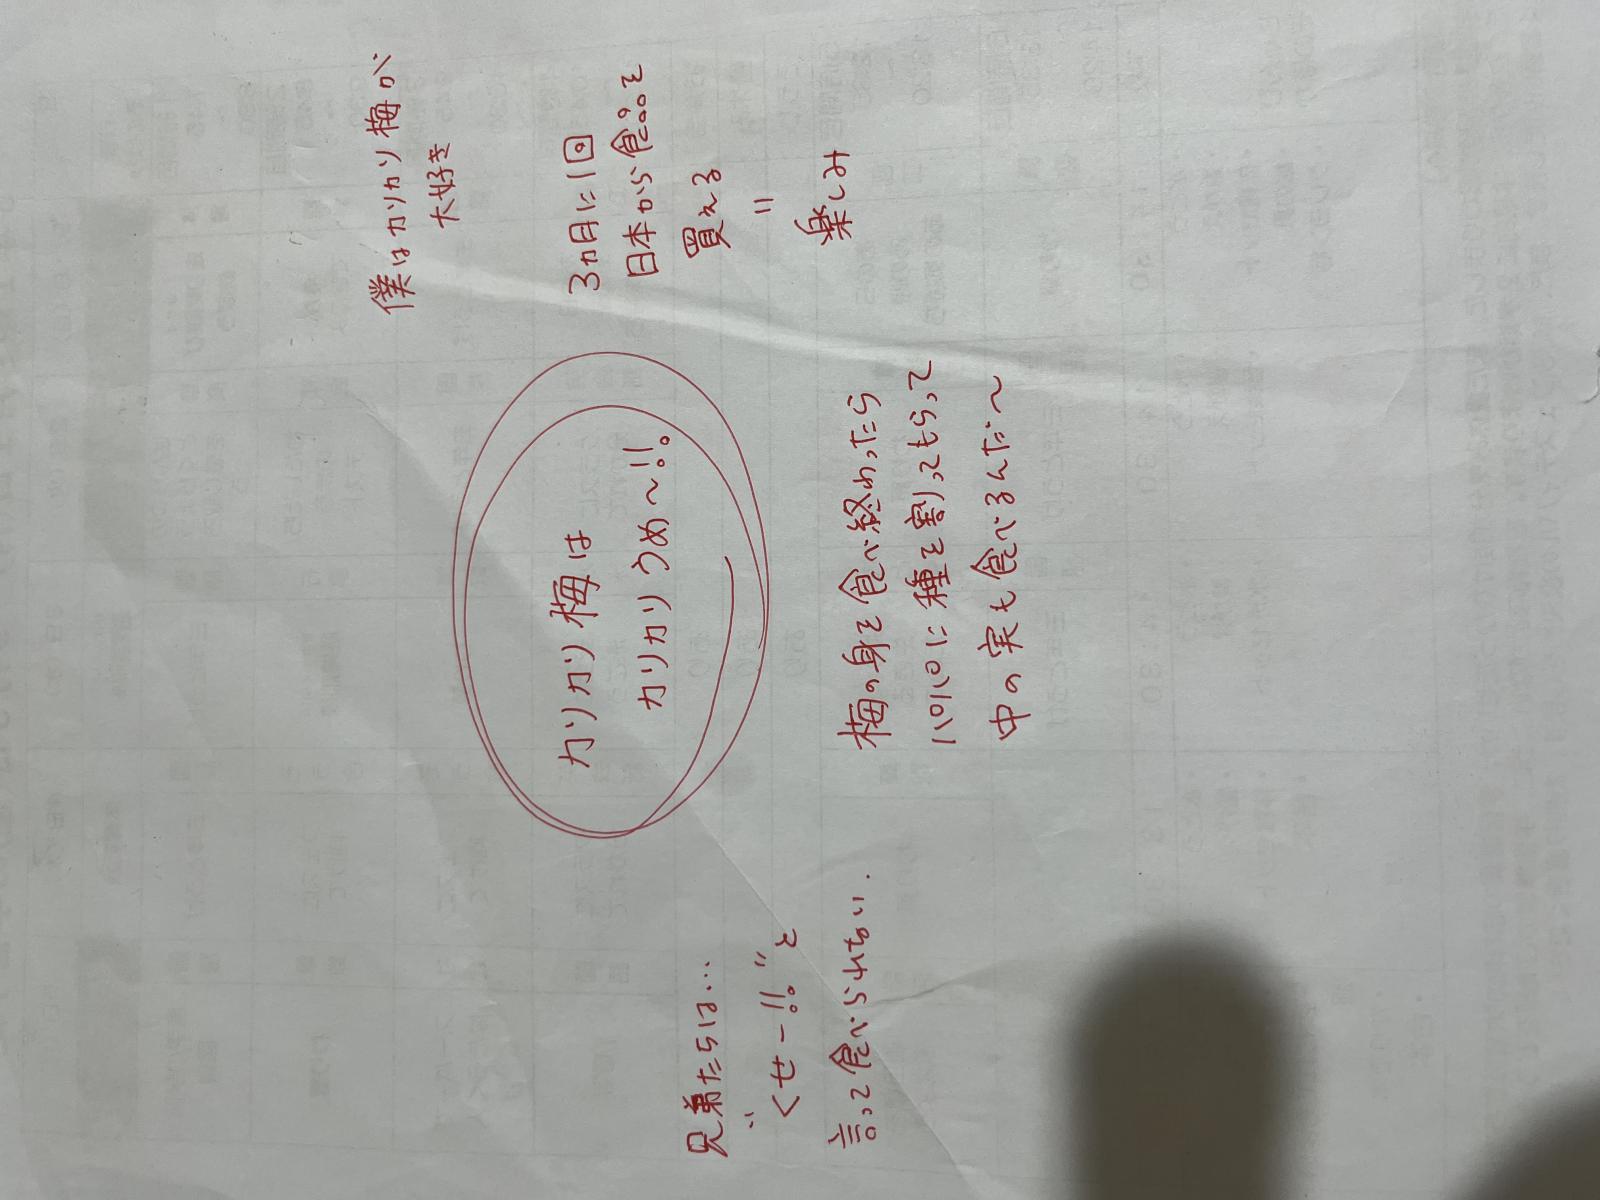 僕はカリカリ梅が
大好き
カリカリ梅は
カリカリうめ〜!!
3ヵ月に1回
日本から食品を
買える
=
楽しみ
兄弟たちは...
"くせー!!"と
言って食べられない.
梅の身を食べ終わったら
パパに種を割ってもらって
中の実も食べるんだ〜